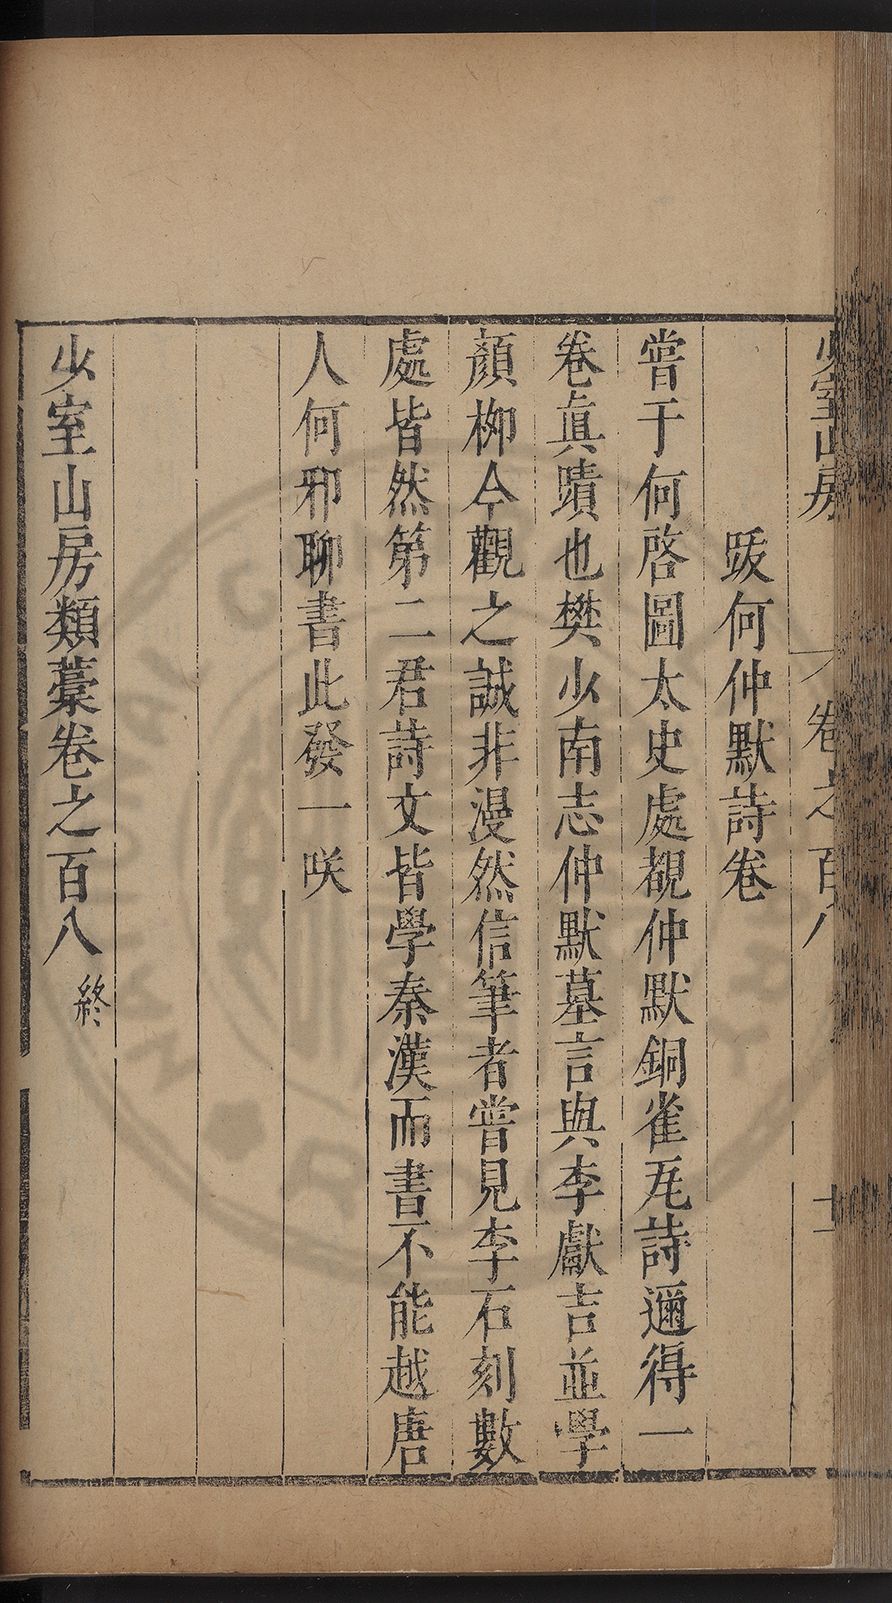 少室山房 卷之百八 十一
跋何仲默詩卷
嘗于何啓圖太史處覩仲默銅雀瓦詩邇得一
卷眞蹟也樊少南志仲默墓言與李獻吉並學
顏柳今觀之誠非漫然信筆者嘗見李石刻數
處皆然第二君詩文皆學秦漢而書不能越唐
人何邪聊書此發一咲
少室山房類藁卷之百八 終